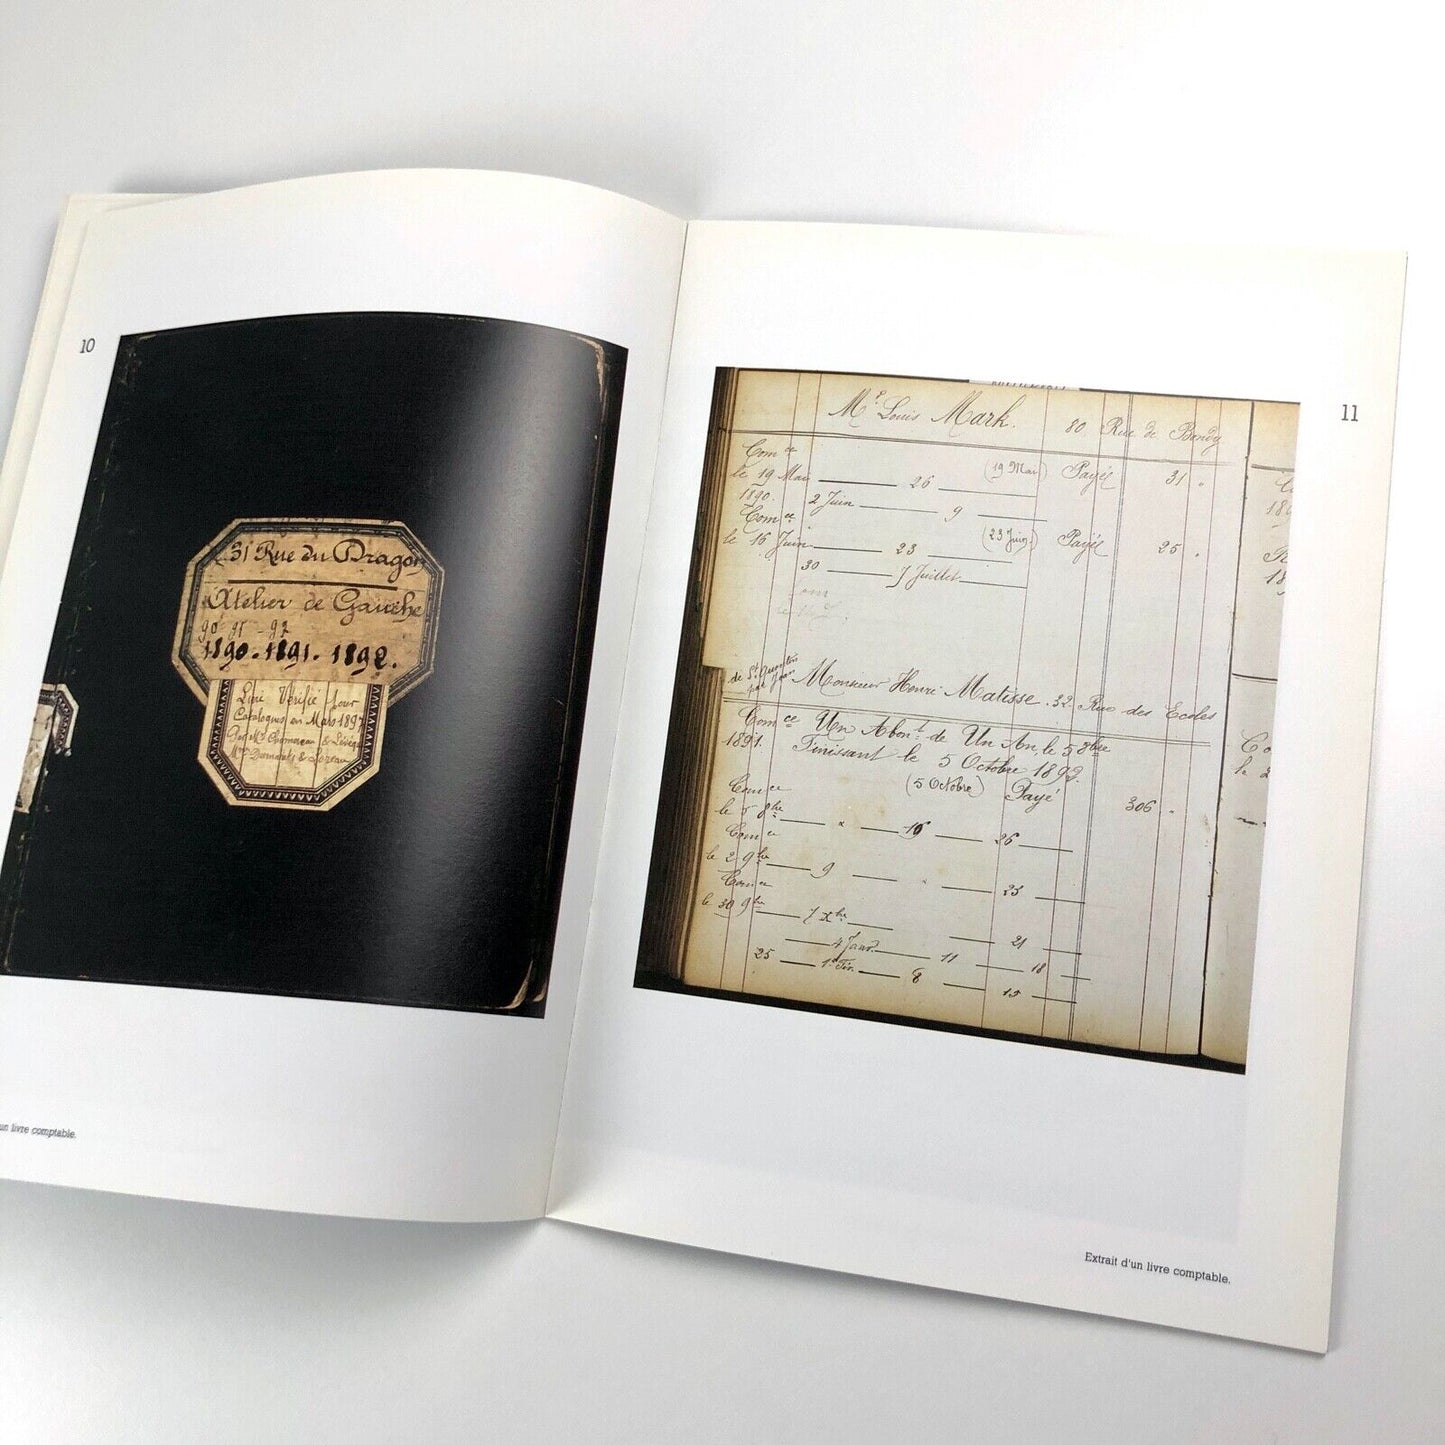 10
31 Rue du Dragon
Atelier de Gauche
90 91 - 92
1890.1891.1892.
Livre Vérifié pour
Catalogues en Mars 189
un livre comptable.
11
Mr Louis Mark. 80 Rue de Bondy
Comce
le 19 Mai 26 (19 Mai) Payé 31 "
1890. 2 Juin 9
Comce
le 16 Juin 23 (23 Juin) Payé 25 "
30 7 Juillet
Com
de St Quentin
par Jean
Monsieur Henri Matisse. 32 Rue des Ecoles
Comce Un Abont. de Un An, le 5 8bre
1891. Finissant le 5 Octobre 1892.
(5 Octobre) Payé 306 "
Comce
le 5 8bre " 16 26
Comce
le 2 9bre 9 " 23
Comce
le 30 9bre 7 Xbre 21
4 Janv. 11 18
25 1er Fév. 8 15
Extrait d'un livre comptable.